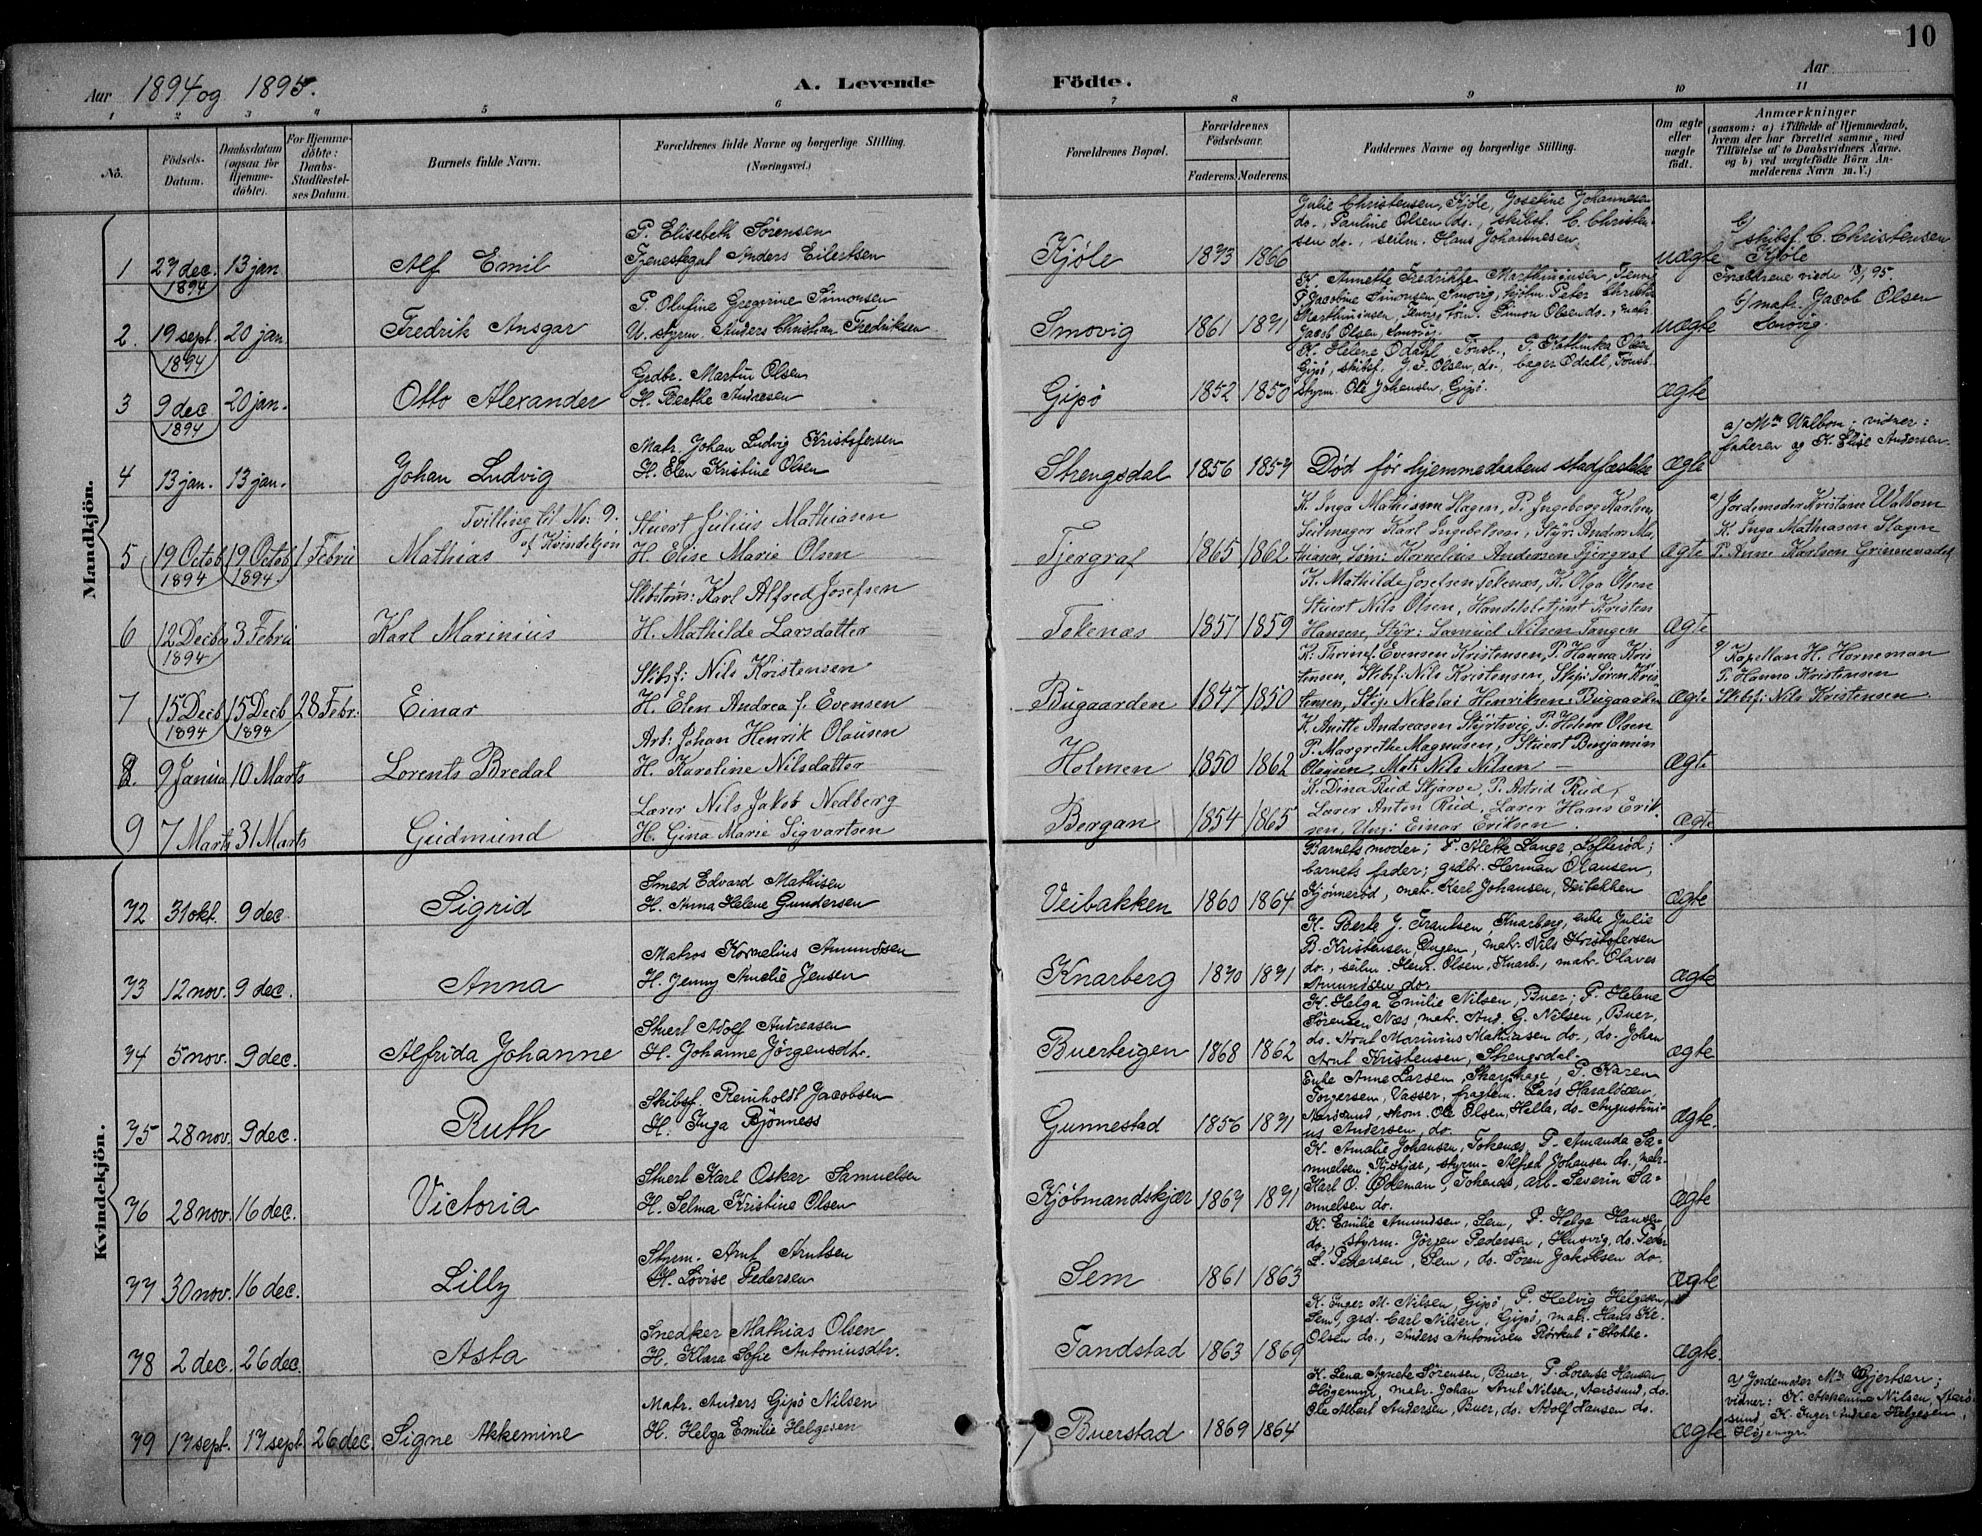 10
Aar 1894 og 1895.
A. Levende Födte.
Aar
1 2 3 4 5 6 7 8 9 10 11
No. Födsels-Datum. Daabsdatum (ogsaa for Hjemmedöbte). For Hjemmedöbte: Daabs-Stadfæstelses Datum. Barnets fulde Navn. Forældrenes fulde Navne og borgerlige Stilling. (Næringsvei.) Forældrenes Bopæl. Forældrenes Födselsaar. Faderens. Moderens. Faddernes Navne og borgerlige Stilling. Om ægte eller uægte födt. Anmærkninger (saasom: a) i Tilfælde af Hjemmedaab, hvem der har forrettet samme, med Tilföielse af to Daabsvidners Navne, og b) ved uægtefödte Börn Anmelderens Navn m.V.)
Mandkjön.
P. Elisebeth Sørensen
1 27 dec. 1894 13 jan Alf Emil Tjenestegut Anders Eilertsen Kjøle 1873 1866
Julie Christensen, Kjøle, Josefine Johannesen
do., Pauline Olsen do., skibsf. C. Christen-
sen do., seilm. Hans Johannesen
uægte
b) skibsf. C. Christensen
Kjøle
Forældrene viede
P. Olufine Gregorine Simonsen
2. 19 sept. 1894 20 jan. Fredrik Ansgar U. styrm. Anders Christian Fredriksen Smovig 1861 1871
K. Annette Fredrikke Marthinsen,
P. Jacobine Simonsen, Smovig, Peter
Simon Olsen do., matr.
Jacob Olsen, Smovig.
uægte
b) matr. Jacob Olsen
Smovig.
Grdbr. Martin Olsen
3 9 dec 1894 20 jan. Otto Alexander H. Berthe Andresen Gipø 1852 1850
K. Helene Odahl, Tønsb., P. Kathinka Olsen
Gipø, skibsf. J. F. Olsen, do., bager Odahl, Tønsb.
styrm. Ole Johansen, Gipø.
ægte
Matr. Johan Ludvig Kristofersen
4 13 jan. 13 jan. Johan Ludvig H. Elen Kristine Olsen Strengsdal 1856 1857 Død før hjemmedaabens stadfæstelse ægte
a) Mm Walbom; vidner:
faderen og K. Elise Andersen.
Tvilling til No: 9. af Kvindekjøn
Stuert Julius Mathiasen
5 19 Octob 1894 19 Octob 1894 1 Febru Mathias H. Elise Marie Olsen Fjergraf 1865 1862
K. Inga Mathiasen Slagen, P. Ingeborg Karlsen,
Seilmager Karl Ingebretsen, Styr: Anders Ma-
thiasen, Søm: Kornelius Andersen Fjergraf
ægte
a) Jordemoder Kristiane Walbom
K. Inga Mathiasen Slagen
P. Anne Karlsen
Skibstøm: Karl Alfred Josefsen
6 12 Decbr 1894 3 Febru Karl Marinius H. Mathilde Larsdatter Tekenæs 1857 1859
K. Mathilde Josefsen Tekenæs, K. Olga Olsen
Stuert Nils Olsen, Handelsbetjent Kristen
Hansen, Styr: Samuel Nilsen Tangen
ægte
Skibsf: Nils Kristensen
7 15 Decb 1894 15 Decb 1894 28 Febr: Einar H. Elen Andrea f. Evensen Bugaarden 1847 1850
K: Thrine Evensen Kristensen, P. Hanna Kris
tensen, Skibsf: Nils Kristensen, Skip: Søren Kris-
tensen, Skip. Nikolai Henriksen Bugaarden
ægte
a) Kapellan H. Horneman
P. Hanna Kristensen
Skibsf: Nils Kristensen
Arb: Johan Henrik Olausen
8. 9 Janua 10 Marts Lorents Bredal H. Karoline Nilsdatter Holmen 1850 1862
K. Anitte Andreasen Styrtsvig, P. Helene Olsen
P. Margrethe Magnusen, Stuert Benjamin
Olausen, Mat: Nils Nilsen
ægte
Lærer Nils Jakob Nedberg
9 7 Marts 31 Marts Gudmund H. Gina Marie Sigvartsen Bergan 1854 1865
K. Dina Rud Skjærve, P. Astrid Rud,
Lærer Anton Rud, Lærer Hans Erik-
sen, Ung: Einar Eriksen.
ægte
Kvindekjön.
Smed Edvard Mathisen
72 31 okt. 9 dec. Sigrid H. Anna Helene Gundersen Veibakken 1860 1864
Barnets moder; P. Alette Lange, Lofterød;
barnets fader; grdbr. Herman Olausen,
Kjønnerød, matr. Karl Johansen, Veibakken
ægte
Matros Kornelius Amundsen
73 12 nov. 9 dec. Anna H. Jenny Amalie Jensen Knarberg 1870 1871
K. Berte J. Frantsen, Knarberg, enke Julie
B. Kristensen Dugen, matr. Nils Kristofersen
do., seilm. Henr. Olsen, Knarb., matr. Olaves
Amundsen do.
ægte
Stuert Adolf Andreasen
74 5 nov. 9 dec. Alfrida Johanne H. Johanne Jörgensdtr. Buerteigen 1868 1862
K. Helga Emilie Nilsen, Buer; P. Helene
Sørensen Næs, matr. And. G. Nilsen, Buer,
do. Arnt Marinius Mathiasen do., do. Johan
Arnt Kristensen, Strengsdal.
ægte
Skibsf. Reinholdt Jacobsen
75 28 nov. 9 dec. Ruth H. Inga Bjönness Gunnestad 1856 1871
Enke Anne Larsen, P. Karen
Torgersen, Vasser, fragtem. Lars Haraldsen
Aarøsund, skom. Ole Olsen, Hella, do. Augustini-
us Andersen, do.
ægte.
Stuert Karl Oskar Samuelsen
76 28 nov. 16 dec. Victoria H. Selma Kristine Olsen Kjöbmandskjær 1869 1871
K. Amalie Johansen, Tokenæs, P. Amanda Sa-
muelsen, Kjøbkjær, styrm. Alfred Johansen do., matr.
Karl O. Ødeman, Tokenæs, arb. Severin Sa-
muelsen do.
ægte
Styrm. Arnt Arntsen
77 30 nov. 16 dec. Lilly H. Lovise Pedersen Sem 1861 1863
K. Emilie Amundsen, Sem, P. Helga Hansen,
do., styrm. Jörgen Pedersen, Husvig, do. Peder
L. Pedersen, Sem, do. Sören Jakobsen do.
ægte
Snedker Mathias Olsen
78 2 dec. 26 dec. Asta H. Klara Sofie Antoniusdtr. Tandstad 1863 1869
K. Inger M. Nilsen, Gipø, P. Helvig Helgesen,
Sem, grd. Carl Nilsen, Gipø, matr. Hans Kr.
Olsen do., Anders Antonisen Rörkul i Stokke.
ægte.
Matr. Anders Gipö Nilsen
79 17 sept. 17 sept. 26 dec. Signe Akkemine H. Helga Emilie Helgesen Buerstad 1869 1864
K. Lena Agnete Sörensen, Buer, P. Lorentse Hansen
Högemyr, matr. Johan Arnt Nilsen, Aarøsund, do.
Ole Albert Andersen, Buer, do. Adolf Hansen do.
ægte
a) Jordemoder Mm Gjertsen;
vidner: K. Akkemine Nilsen, Aarö-
sund, K. Inger Andrea Helgesen,
Højemyr.